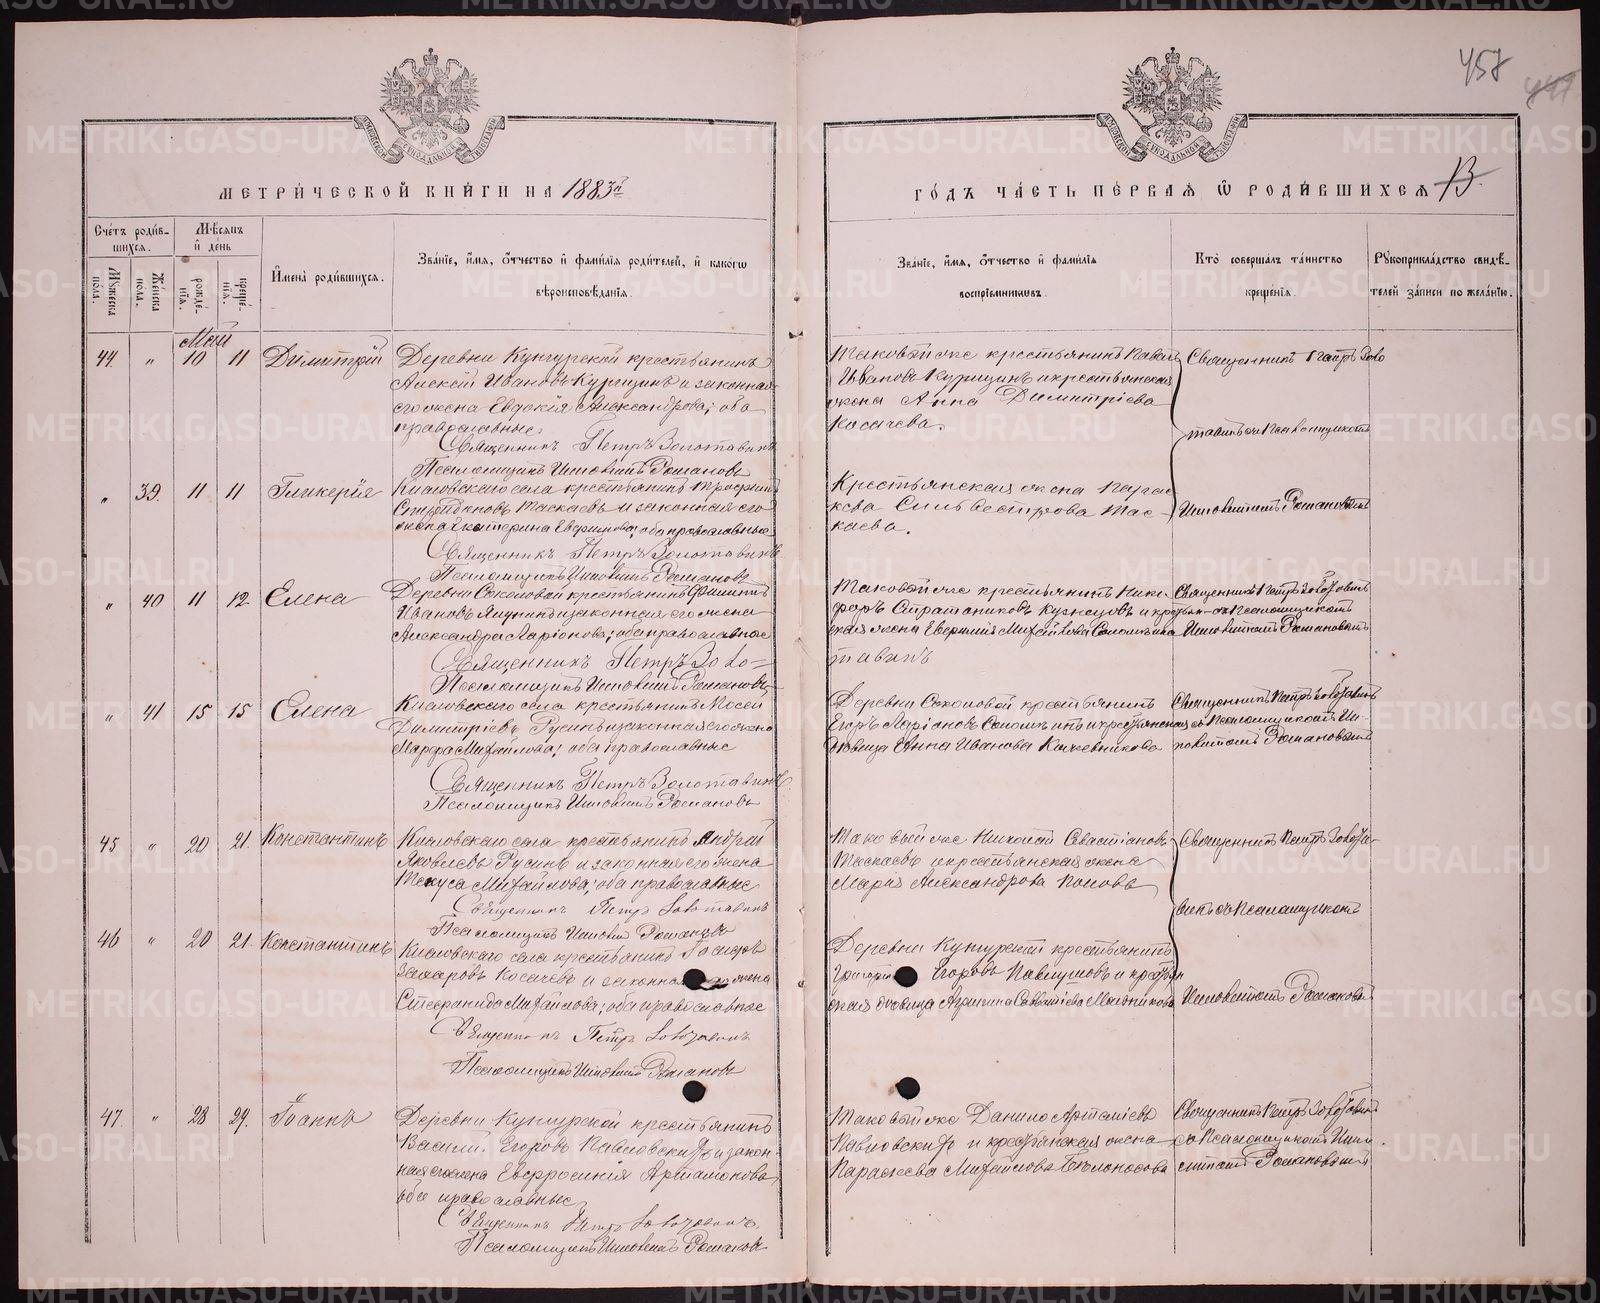 457
МЕТРИ́ЧЕСКОЙ КНИ́ГИ НА 1883й
ГО́ДЪ ЧА́СТЬ ПЕ́РВАЯ Ѽ РОДИ́ВШИХСЯ
Сче́тъ роди́в-
шихся.
Мѣ́сяцъ
и де́нь
Му́жеска
по́ла.
Же́нска
по́ла.
рожде́-
нія.
креще́-
нія.
Имена̀ роди́вшихся.
Зва́ніе, и́мя, о́тчество и фами́лія роди́телей, и како́гѡ
вѣроисповѣ́данія.
Зва́ніе, и́мя, о́тчество и фами́лія
воспріе́мниковъ.
Кто̀ соверша́лъ та́инство
креще́нія.
Рукоприкла́дство свидѣ́-
телей за́писи по жела́нію.
Май
44. " 10 11 Димитрій
Деревни Кунгурской крестьянинъ
Алексѣй Ивановъ Курицинъ и законная
его жена Евдокія Александрова; оба
православные.
Священникъ Петръ Золотавинъ
Псаломщикъ Ипполитъ Романовъ
Таковой же крестьянинъ Павелъ
Ивановъ Курицинъ и крестьянская
жена Анна Димитріева
Косачева.
Священникъ Петръ Золо
тавинъ съ Псаломщикомъ
" 39. 11 11 Гликерія
Кисловскаго села крестьянинъ Трофимъ
Стефановъ Таскаевъ и законная его
жена Екатерина Евфимова; оба православные
Священникъ Петръ Золотавинъ
Псаломщикъ Ипполитъ Романовъ
Крестьянская жена Парас-
кева Сильвестрова Тас-
каева.
Ипполитомъ Романовымъ
" 40 11 12 Елена
Деревни Соколовой крестьянинъ Филиппъ
Ивановъ и законная его жена
Александра Ларіонова; оба православные
Священникъ Петръ Золо-
тавинъ
Псаломщикъ Ипполитъ Романовъ
Таковой же крестьянинъ Ники-
форъ Стратониковъ Кузнецовъ и крестьян-
ская жена Евфимія Михайлова
Священникъ Петръ Золотавинъ
съ Псаломщикомъ
Ипполитомъ Романовымъ
" 41 15 15 Елена
Кисловскаго села крестьянинъ Мосей
Димитріевъ Русинъ и законная его жена
Марфа Михайлова; оба православные
Священникъ Петръ Золотавинъ
Псаломщикъ Ипполитъ Романовъ
Деревни Соколовой крестьянинъ
Егоръ Ларіоновъ и крестьянская
дѣвица Анна Иванова Кочевникова
Священникъ Петръ Золотавинъ
съ Псаломщикомъ Ип-
политомъ Романовымъ
45 " 20 21. Константинъ
Кисловскаго села крестьянинъ Андрей
Яковлевъ Русинъ и законная его жена
Текуса Михайлова; оба православные
Священникъ Петръ Золотавинъ
Псаломщикъ Ипполитъ Романовъ
Таковый же Севастіановъ
Таскаевъ и крестьянская жена
Марія Александрова Попова
Священникъ Петръ Золота-
винъ съ Псаломщикомъ
46 " 20 21. Константинъ
Кисловскаго села крестьянинъ
Захаровъ Косачевъ и законная жена
Стефанида Михайлова; оба православные
Священникъ Петръ Золотавинъ
Псаломщикъ Ипполитъ Романовъ
Деревни Кунгурской крестьянинъ
Григорій Егоровъ Павлушовъ и крестьян
ская дѣвица Мельникова
Ипполитомъ Романовымъ
47. " 28 29. Іоаннъ
Деревни Кунгурской крестьянинъ
Василій Егоровъ Павловскихъ и закон-
ная его жена Евфросинія Артамонова,
оба православные
Священникъ Петръ Золотавинъ.
Псаломщикъ Ипполитъ Романовъ
Таковой же Данило
Павловскихъ и крестьянская жена
Параскева Михайлова Бѣлоносова
Священникъ Петръ Золотавинъ
съ Псаломщикомъ Иппо-
литомъ Романовымъ